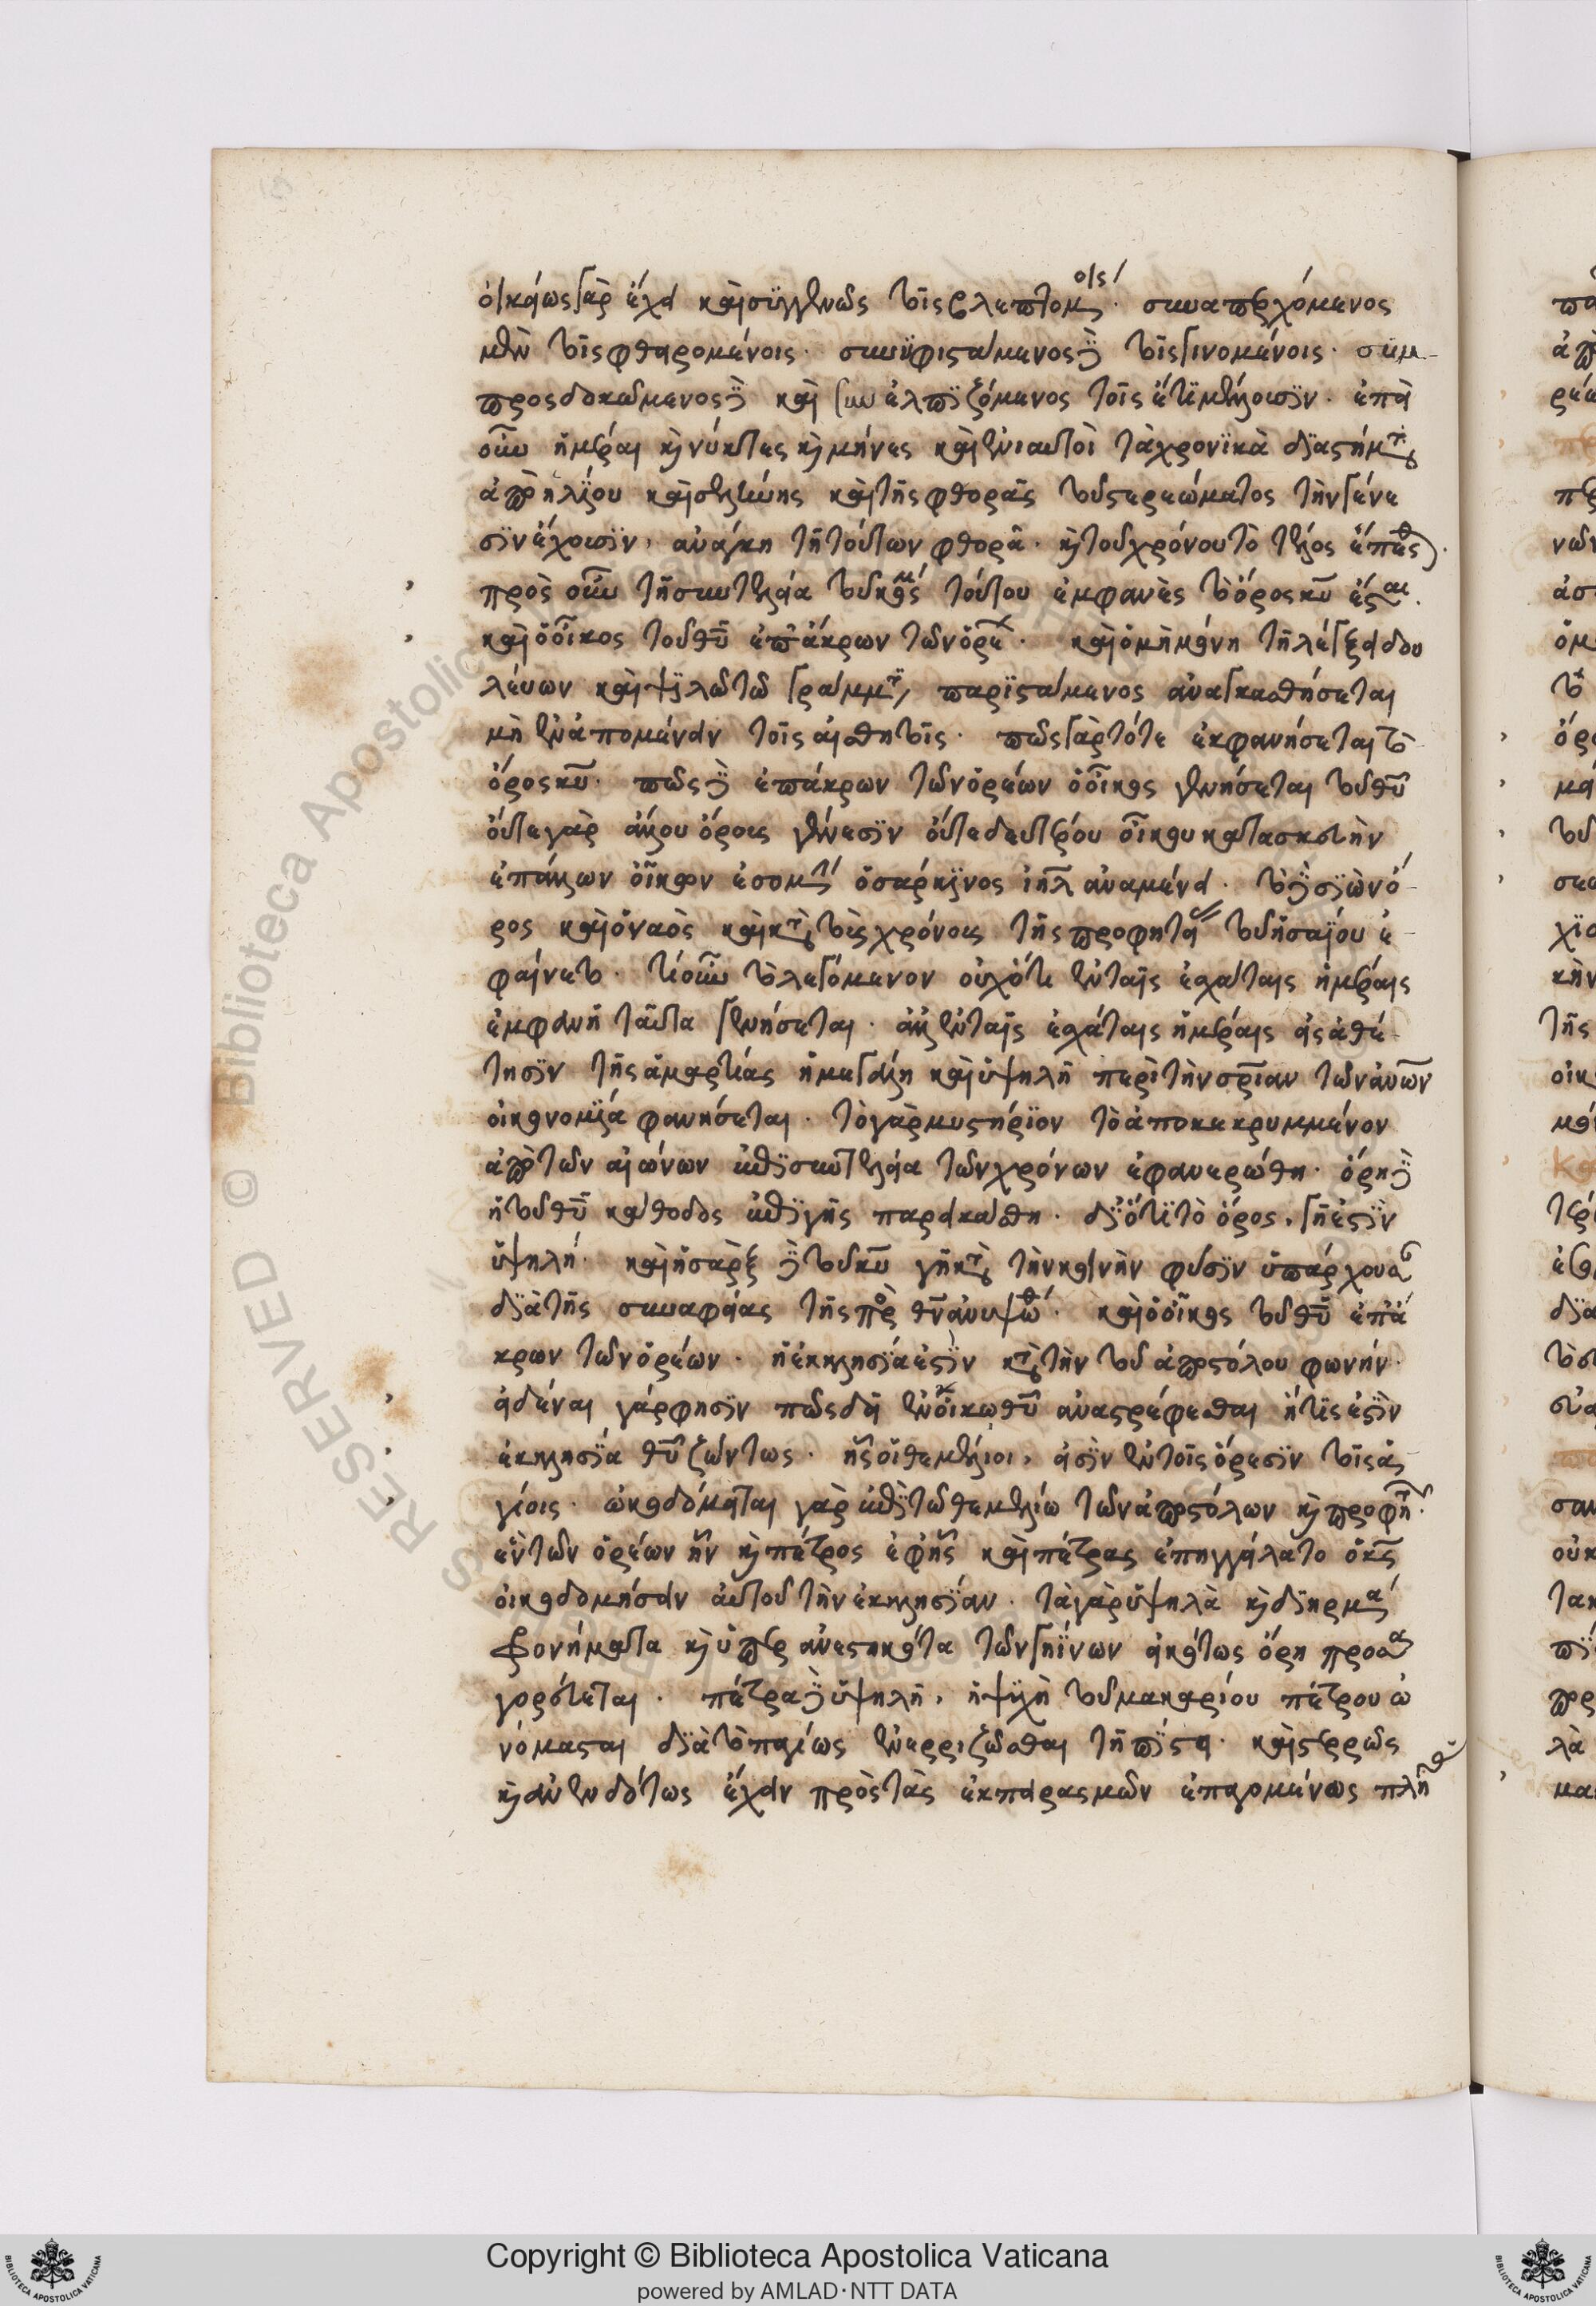 οἰκείως γὰρ ἔχει καὶ συγγενῶς τοῖς βλεπομένοις. συναπερχόμενος
μὲν τοῖς φθειρομένοις. συνυφιστάμενος δὲ τοῖς γινομένοις. συμ-
προσδοκώμενος δὲ καὶ συνελπιζόμενος τοῖς ἔτι μέλλουσιν. ἐπεὶ
οὖν ἡμέραι καὶ νύκτες καὶ μῆνες καὶ ἐνιαυτοὶ τὰ χρονικὰ διαστήματα
ἀπὸ ἡλίου καὶ σελήνης καὶ τῆς φθορᾶς τοῦ στερεώματος τὴν γένε
σιν ἔχουσιν, ἀνάγκη τῇ τούτων φθορᾷ. καὶ τοῦ χρόνου τὸ τέλος ἕπεσθαι.
πρὸς οὖν τῇ συντελείᾳ τοῦ κόσμου τούτου ἐμφανὲς τὸ ὄρος κυ ἔσται.
καὶ ὁ οἶκος τοῦ θυ ἐπ' ἄκρων τῶν ὀρέων. καὶ ὁ μὴ μόνῃ τῇ λέξει δου
λεύων καὶ ψιλῷ τῷ γράμματι παριστάμενος ἀναγκασθήσεται
μὴ ἐναπομένειν τοῖς αἰσθητοῖς. πῶς γὰρ τότε ἐκφανήσεται τὸ
ὄρος κυ. πῶς δὲ ἐπ' ἄκρων τῶν ὀρέων ὁ οἶκος γενήσεται τοῦ θυ
οὔτε γὰρ ἄλλου ὄρους γένεσιν οὔτε δευτέρου οἴκου κατασκευὴν
ἐπ' ἄλλων οἴκων ἐσομένην ὁ σάρκινος ιηλ ἀναμένει. τὸ δὲ σιὼν ὄ-
ρος καὶ ὁ ναὸς καὶ κατὰ τοὺς χρόνους τῆς προφητείας τοῦ ἡσαΐου ἐ-
φαίνετο. τί οὖν τὸ λεγόμενον οὐχ ὅτι ἐν ταῖς ἐσχάταις ἡμέραις
ἐμφανῆ ταῦτα γενήσεται. ἀλλ' ἐν ταῖς ἐσχάταις ἡμέραις εἰς ἀθέ-
τησιν τῆς ἁμαρτίας ἡ μεγάλη καὶ ὑψηλὴ περὶ τὴν σρίαν τῶν ἀνων
οἰκονομία φανήσεται. τὸ γὰρ μυστήριον τὸ ἀποκεκρυμμένον
ἀπὸ τῶν αἰώνων ἐπὶ συντελείᾳ τῶν χρόνων ἐφανερώθη. ὄρη δὲ
ἡ τοῦ θυ κάθοδος ἐπὶ γῆς παρεικάσθη. διότι τὸ ὄρος, γῆ ἐστὶν
ὑψηλή. καὶ ἡ σὰρξ δὲ τοῦ κυ γῆ κατὰ τὴν κοινὴν φύσιν ὑπάρχουσα
διὰ τῆς συναφείας τῆς πρὸς θν ἀνυψώθη. καὶ ὁ οἶκος τοῦ θυ ἐπ' ἄ
κρων τῶν ὀρέων. ἡ ἐκκλησία ἐστὶν κατὰ τὴν τοῦ ἀποστόλου φωνήν.
εἰδέναι γάρ φησιν πῶς δεῖ ἐν οἴκῳ θυ ἀναστρέφεσθαι ἥτις ἐστὶν
ἐκκλησία θυ ζῶντος. ἧς οἱ θεμέλιοι, εἰσὶν ἐν τοῖς ὄρεσιν τοῖς ἁ-
γίοις. ὠκοδόμηται γὰρ ἐπὶ τῷ θεμελίῳ τῶν ἀποστόλων καὶ προφητῶν.
ἓν τῶν ὀρέων ἦν καὶ πέτρος ἐφ' ἧς καὶ πέτρας ἐπηγγείλατο ὁ κς
οἰκοδομήσειν αὐτοῦ τὴν ἐκκλησίαν. τὰ γὰρ ὑψηλὰ καὶ διηρμένα
φρονήματα καὶ ὑπερανεστηκότα τῶν γηΐνων εἰκότως ὄρη προσα
γορεύεται. πέτρα δὲ ὑψηλὴ, ἡ ψυχὴ τοῦ μακαρίου πέτρου ὠ
νόμασται διὰ τὸ παγίως ἐνερριζῶσθαι τῇ πίστει. καὶ στερρῶς
καὶ ἀνενδότως ἔχειν πρὸς τὰς ἐκ πειρασμῶν ἐπαγομένας πλη